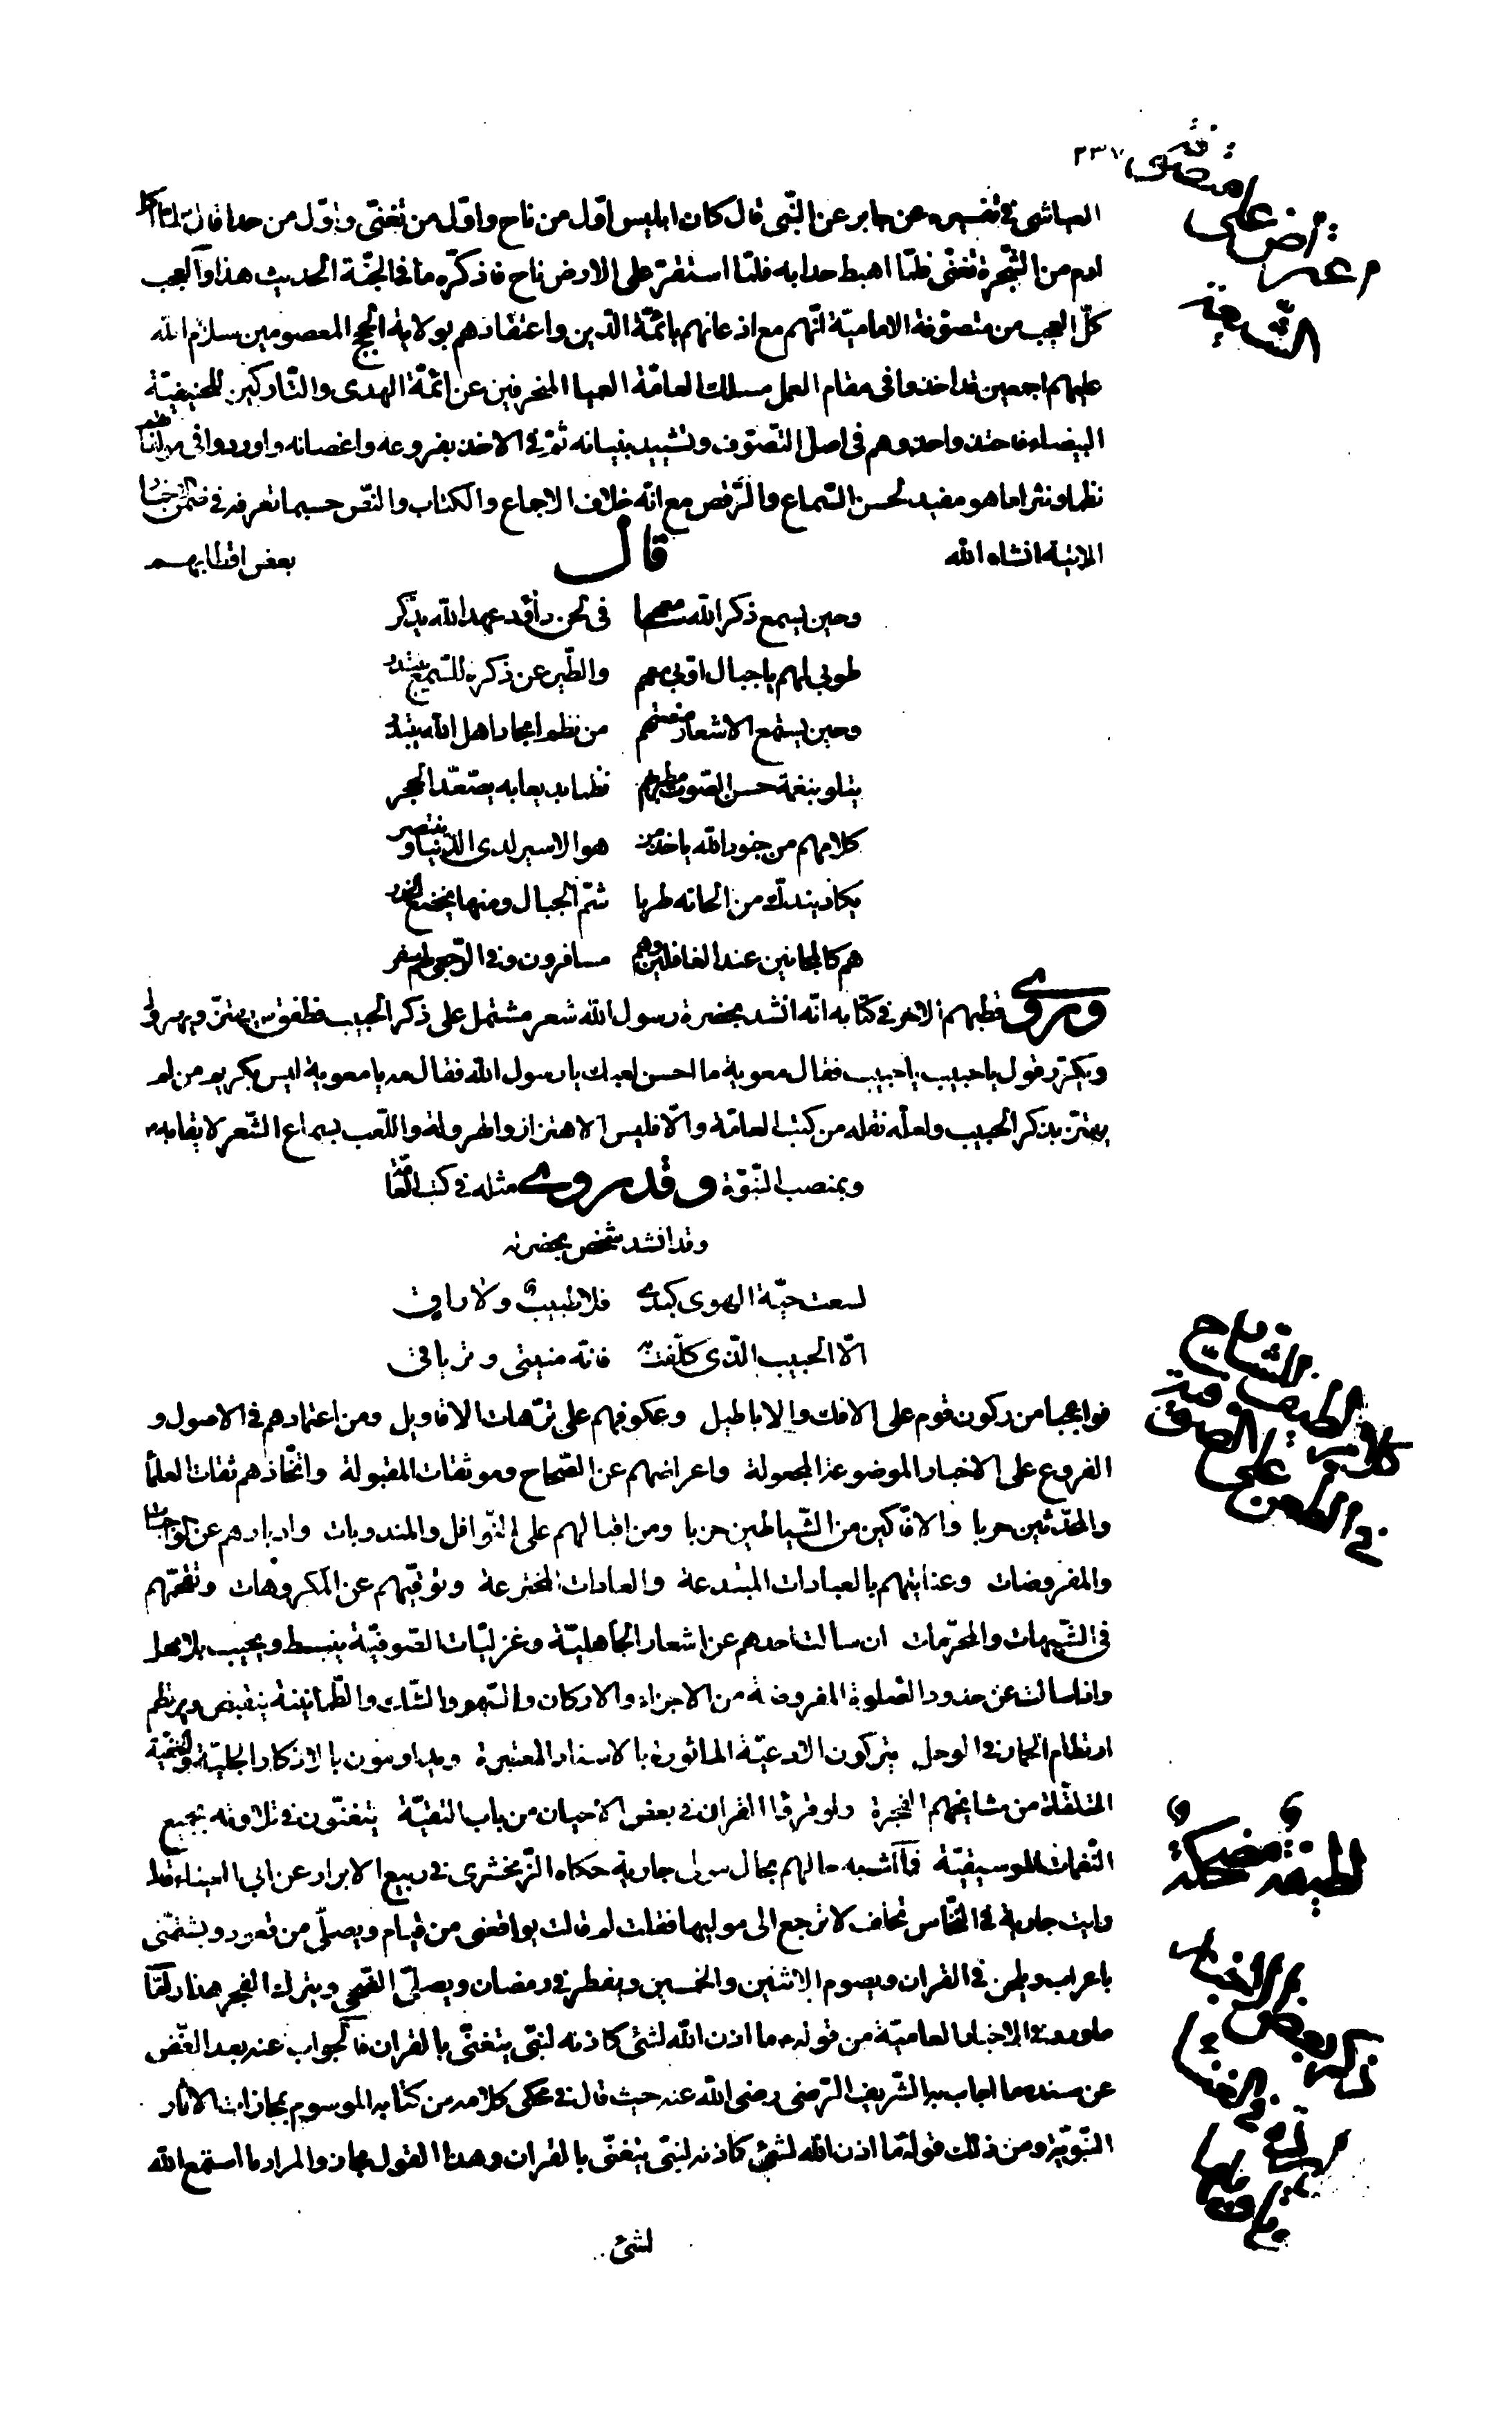 ٢٣٧
اعتراض على متصوفى الشيعة
العياشى فى تفسيره عن جابر عن النّبى قال كان ابليس اوّل من ناح واوّل من تغنّى واوّل من حدا قال لمّا اكل
ادم من الشّجرة تغنّى فلمّا اهبط حدا به فلمّا استقرّ على الارض ناح فاذكره ما فى الجنّة الحديث هذا والعجب
كلّ العجب من متصوّفة الاماميّة انّهم مع اذعانهم بائمّة الدّين واعتقادهم بولاية الحجج المعصومين سلام الله
عليهم اجمعين قد اخذوا فى مقام العمل مسلك العامّة العميا المنحرفين عن ائمّة الهدى والتّاركين للحنيفيّة
البيضاء فاحتذوا حذوهم فى اصل التّصوّف وتشييد بنيانه ثمّ فى الاخذ بفروعه واغصانه واوردوا فى
نظما ونثرا ما هو مفيد لحسن السّماع والرّقص مع انّه خلاف الاجماع والكتاب والنّصّ حسبما تعرفه فى ضمن الاخبار
الاتية انشاء الله قال بعض اقطابهم
وحين يسمع ذكر الله فى لحن عهد الله يدّكر
طوبى لهم يا جبال اوّبى معهم والطّير عن ذكره للسّميع
وحين يستمع الاشعار من نظم اهل الله
يتلو بنغمة حسن الصّوت يصّعّد الحجر
كلامهم من جنود الله ياخذ من هو الاسير لدى الدّنيا وينتصر
يكاد يندكّ من الحانه طربا شمّ الجبال ومنها يخضع
هم كالمجانين عند الغافلين وهم مسافرون وفى
وروى قطبهم الاخر فى كتابه انّه انشد بحضرة رسول الله شعر مشتمل على ذكر الحبيب فطفق يهتزّ ويهرول
ويكرّر قول يا حبيب يا حبيب فقال معوية ما احسن لعبك يا رسول الله فقال مه يا معوية ليس بكريم من لم
يهتزّ بذكر الحبيب ولعلّه نقله من كتب العامّة والّا فليس الاهتزاز والهرولة واللّعب بسماع الشّعر لايقا به
وبمنصب النّبوّة وقد روى مثله فى كتب العامّة
وقد انشد شخص بحضرته
لسعت حيّة الهوى كبدى فلا طبيب ولا راقى
الّا الحبيب الّذى كلّفت به فانّه منيتى وترياقى
كلام لطيف للشارح فى الطعن على الصوفية
فواعجبا من ركون قوم على الافك والاباطيل وعكوفهم على ترّهات الاقاويل ومن اعتمادهم فى الاصول و
الفروع على الاخبار الموضوعة المجعولة واعراضهم عن الصّحاح وموثقات المقبولة واتّخاذهم ثقات العلماء
والمحدّثين حربا والافّاكين من الشّياطين حزبا ومن اقبالهم على النّوافل والمندوبات وادبارهم عن الواجبات
والمفروضات وعنايتهم بالعبادات المبتدعة والعادات المخترعة وتوقّيهم عن المكروهات وتقحّمهم
فى الشّبهات والمحرّمات ان سالت احدهم عن اشعار الجاهليّة وغزليّات الصّوفيّة ينبسط ويجيب بلا مهل
واذا سالت عن حدود الصّلوة المفروضة من الاجزاء والاركان والسّهو والشّك والطّمانينة ينقبض ويرتطم
ارتطام الحمار فى الوحل يتركون الادعيّة الماثورة بالاسناد المعتبرة ويداومون بالاذكار الجليّة والخفيّة
المتلقّاة من مشايخهم الفجرة ولو قرؤا القران فى بعض الاحيان من باب التقيّة يتغنّون فى تلاوته بجميع
النّغمات الموسيقيّة فما اشبه حالهم بحال مولى جارية حكاه الزّمخشرى فى ربيع الابرار عن ابى العيناء قال
لطيفة مضحكة
رايت جارية فى النخّاس تحلف لا ترجع الى موليها فقلت لم قالت يواقعنى من قيام ويصلّى من قعود ويشتمنى
باعراب ويلحن فى القران ويصوم الاثنين والخميس ويفطر فى رمضان ويصلّى الضّحى ويترك الفجر هذا
ما ورد فى الاخبار العاميّة من قوله ما اذن الله لشئ كاذنه لنبىّ يتغنّى بالقران فالجواب عنه بعد الغضّ
عن سنده ما اجاب به الشّريف الرّضى رضى الله عنه حيث قال فى محكى كلامه من كتابه الموسوم بمجازات الاثار
النّبويّة ومن ذلك قوله ما اذن الله لشئ كاذنه لنبىّ يتغنّى بالقران وهذا القول مجاز والمراد ما استمع الله
لشئ